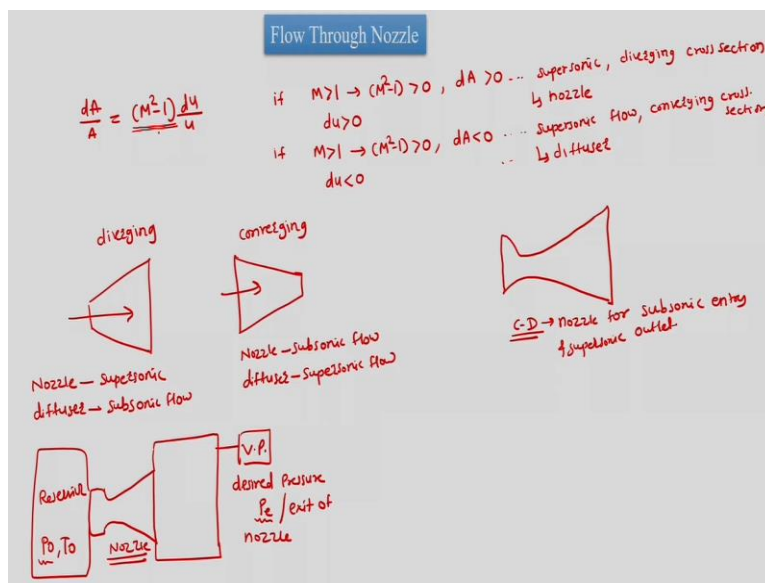 Flow Through Nozzle
dA/A = (M²-1) du/u
if M>1 → (M²-1) >0 , dA >0 ... supersonic, diverging cross section
du>0 ↳ nozzle
if M>1 → (M²-1) >0, dA<0 ... supersonic flow, converging cross-section
du<0 ... ↳ diffuser
diverging
converging
Nozzle – supersonic
diffuser → subsonic flow
Nozzle – subsonic flow
diffuser – supersonic flow
C-D → nozzle for subsonic entry
& supersonic outlet
Reservoir
Po, To
Nozzle
V.P.
desired pressure
Pe / exit of
nozzle